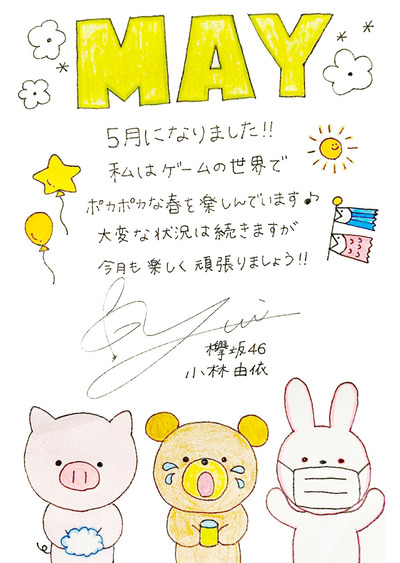 MAY
5月になりました!!
私はゲームの世界で
ポカポカな春を楽しんでいます♪
大変な状況は続きますが
今月も楽しく頑張りましょう!!
Yui
欅坂46
小林由依